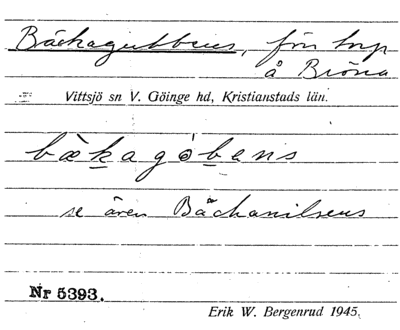 Bäckagubbens, förr torp
å Bröna
Vittsjö sn V. Göinge hd, Kristianstads län.
bæ̀kagòbens
se även Bäckanilsens
Nr 5393.
Erik W. Bergenrud 1945.